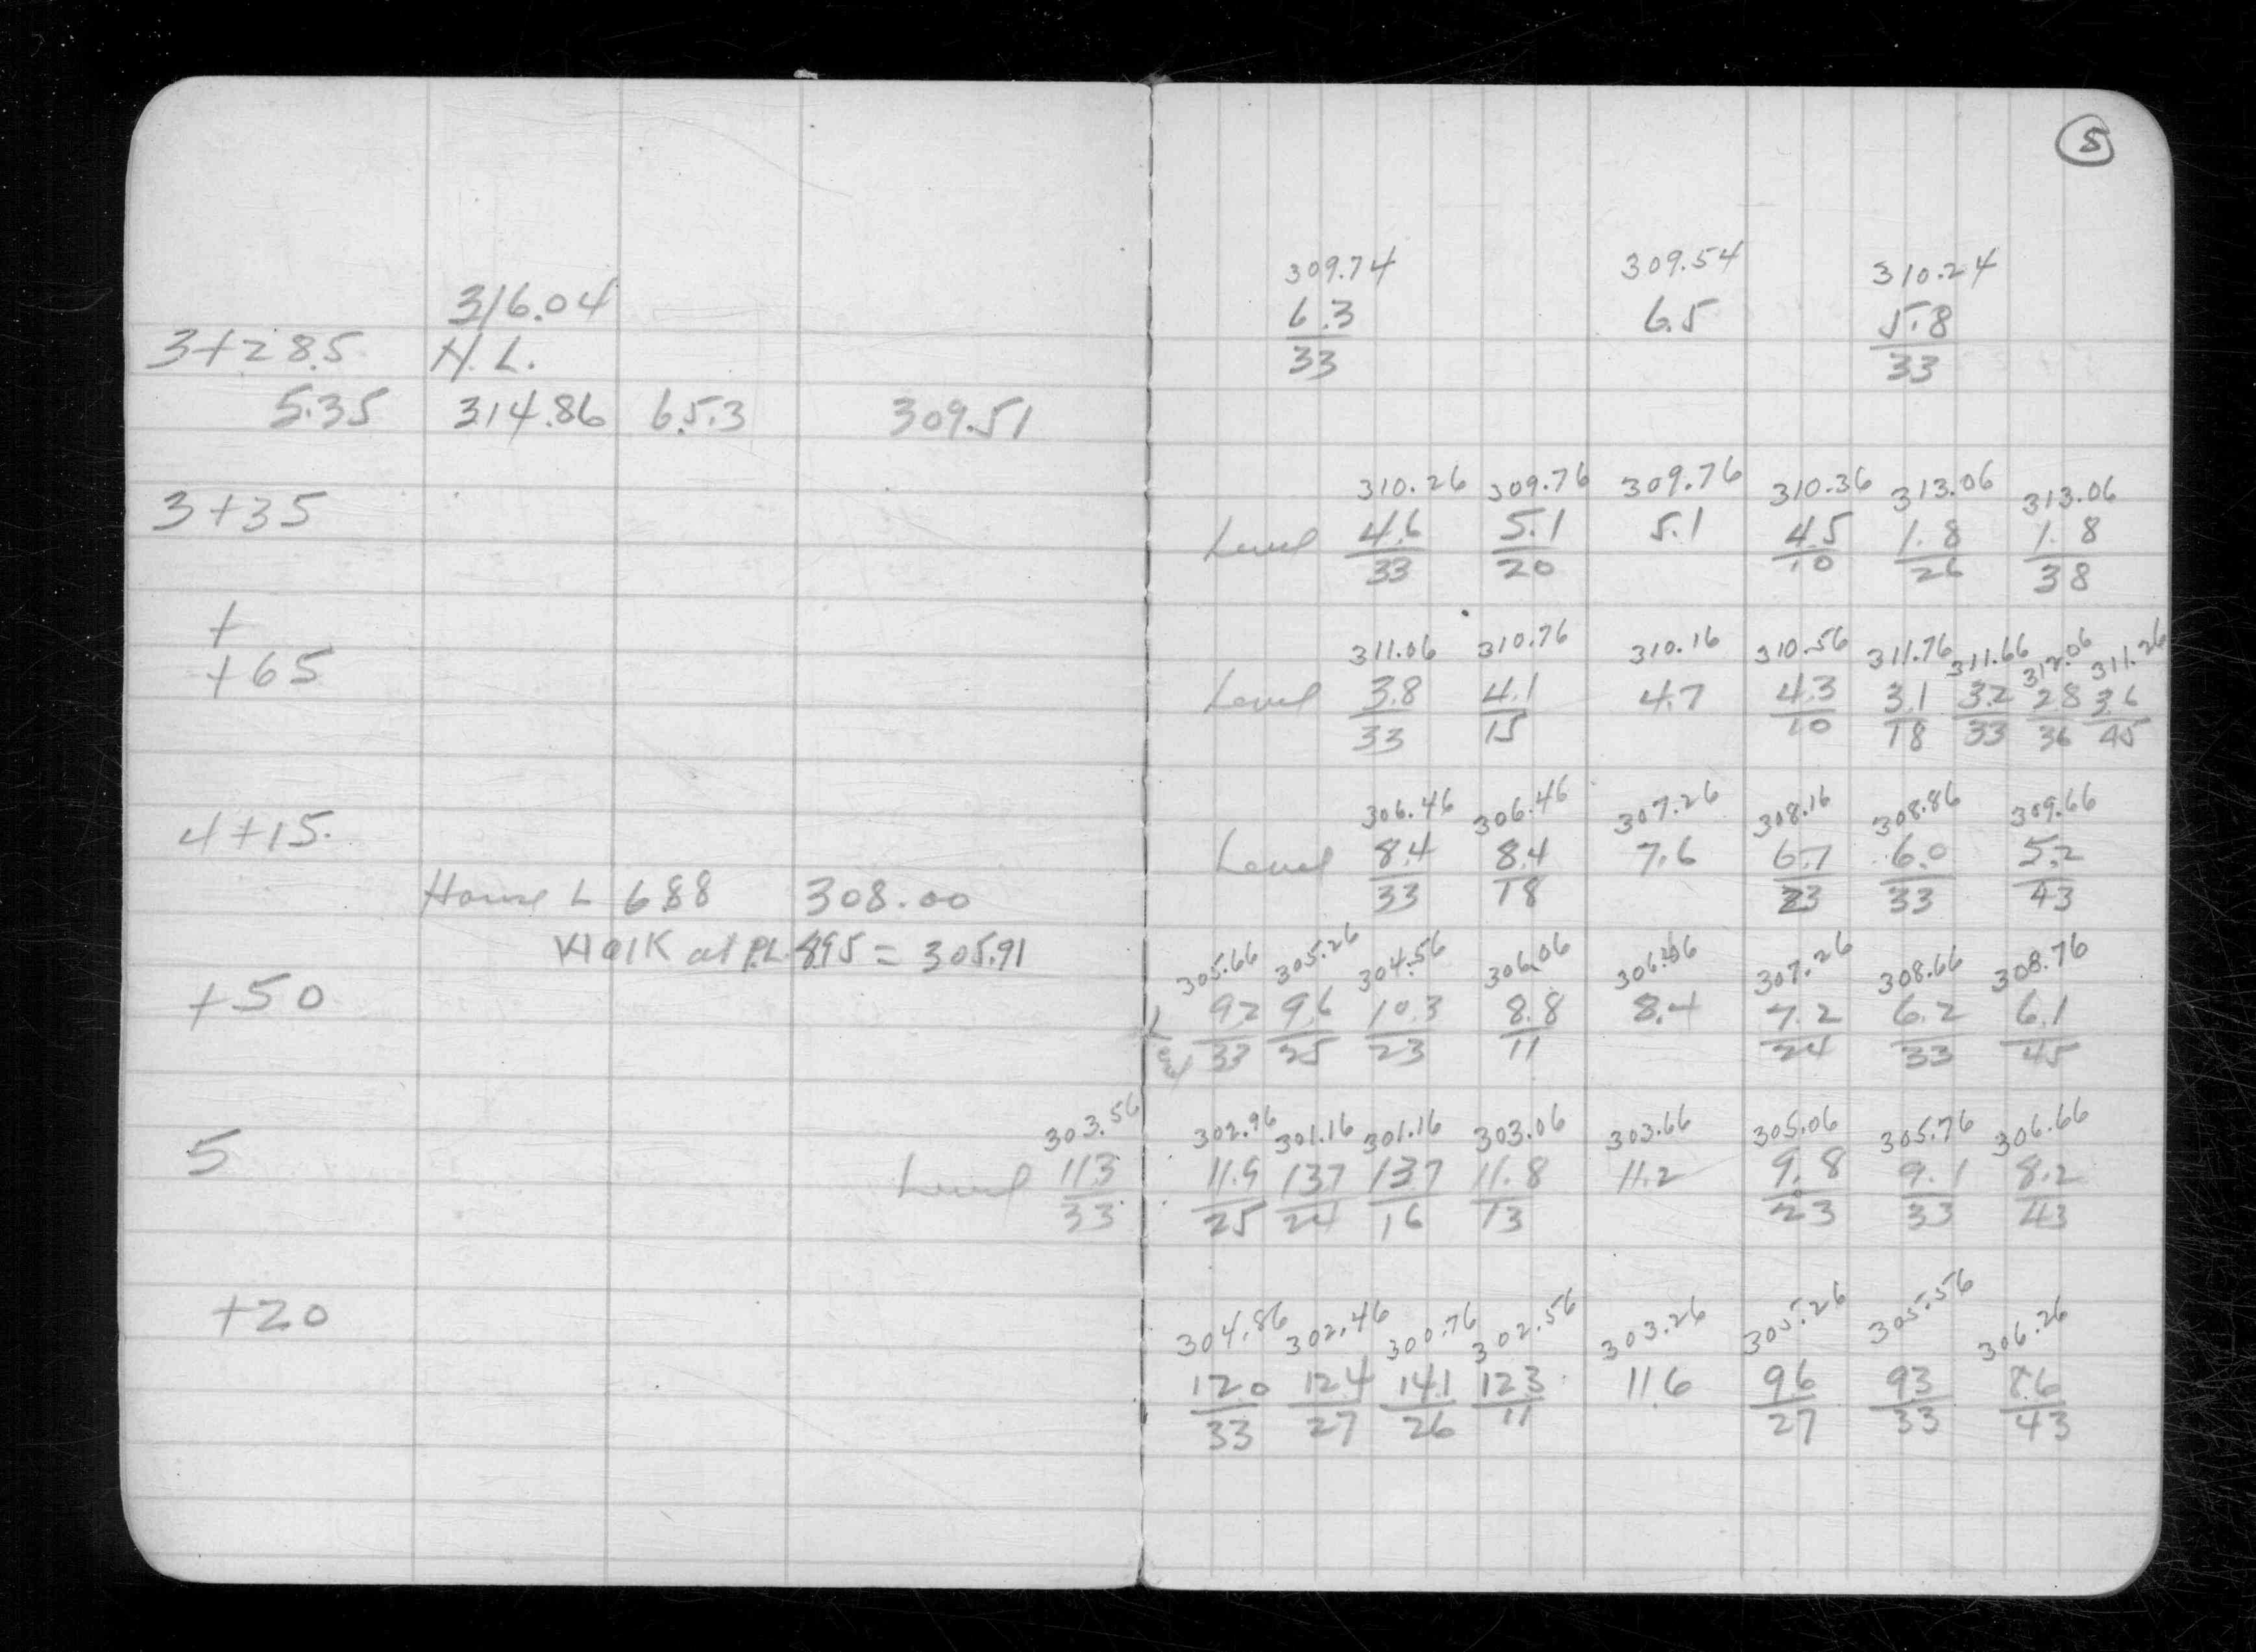 5
309.74 309.54 310.24
316.04 6.3 6.5 5.8
3+28.5 H.L. 33 33
5.35 314.86 6.5.3 309.51
310.26 309.76 309.76 310.36 313.06 313.06
3+35 Level 4.6 5.1 5.1 4.5 1.8 1.8
33 20 10 26 38
+
311.06 310.76 310.16 310.56 311.76 311.66 312.06 311.26
+65 Level 3.8 4.1 4.7 4.3 3.1 3.2 2.8 3.6
33 15 10 18 33 36 45
306.46 306.46 307.26 308.16 308.86 309.66
4+15. Level 8.4 8.4 7.6 6.7 6.0 5.2
33 18 23 33 43
House L 6.88 308.00
Walk at P.L. 8.95 = 305.91
305.66 305.26 304.56 306.06 306.46 307.26 308.66 308.76
+50 9.2 9.6 10.3 8.8 8.4 7.2 6.2 6.1
33 25 23 11 24 33 45
303.56 302.96 301.16 301.16 303.06 303.66 305.06 305.76 306.66
5 Level 11.3 11.9 13.7 13.7 11.8 11.2 9.8 9.1 8.2
33 25 24 16 13 23 33 43
304.86 302.46 300.76 302.56 303.26 305.26 305.56 306.26
+20 12.0 12.4 14.1 12.3 11.6 9.6 9.3 8.6
33 27 26 11 27 33 43